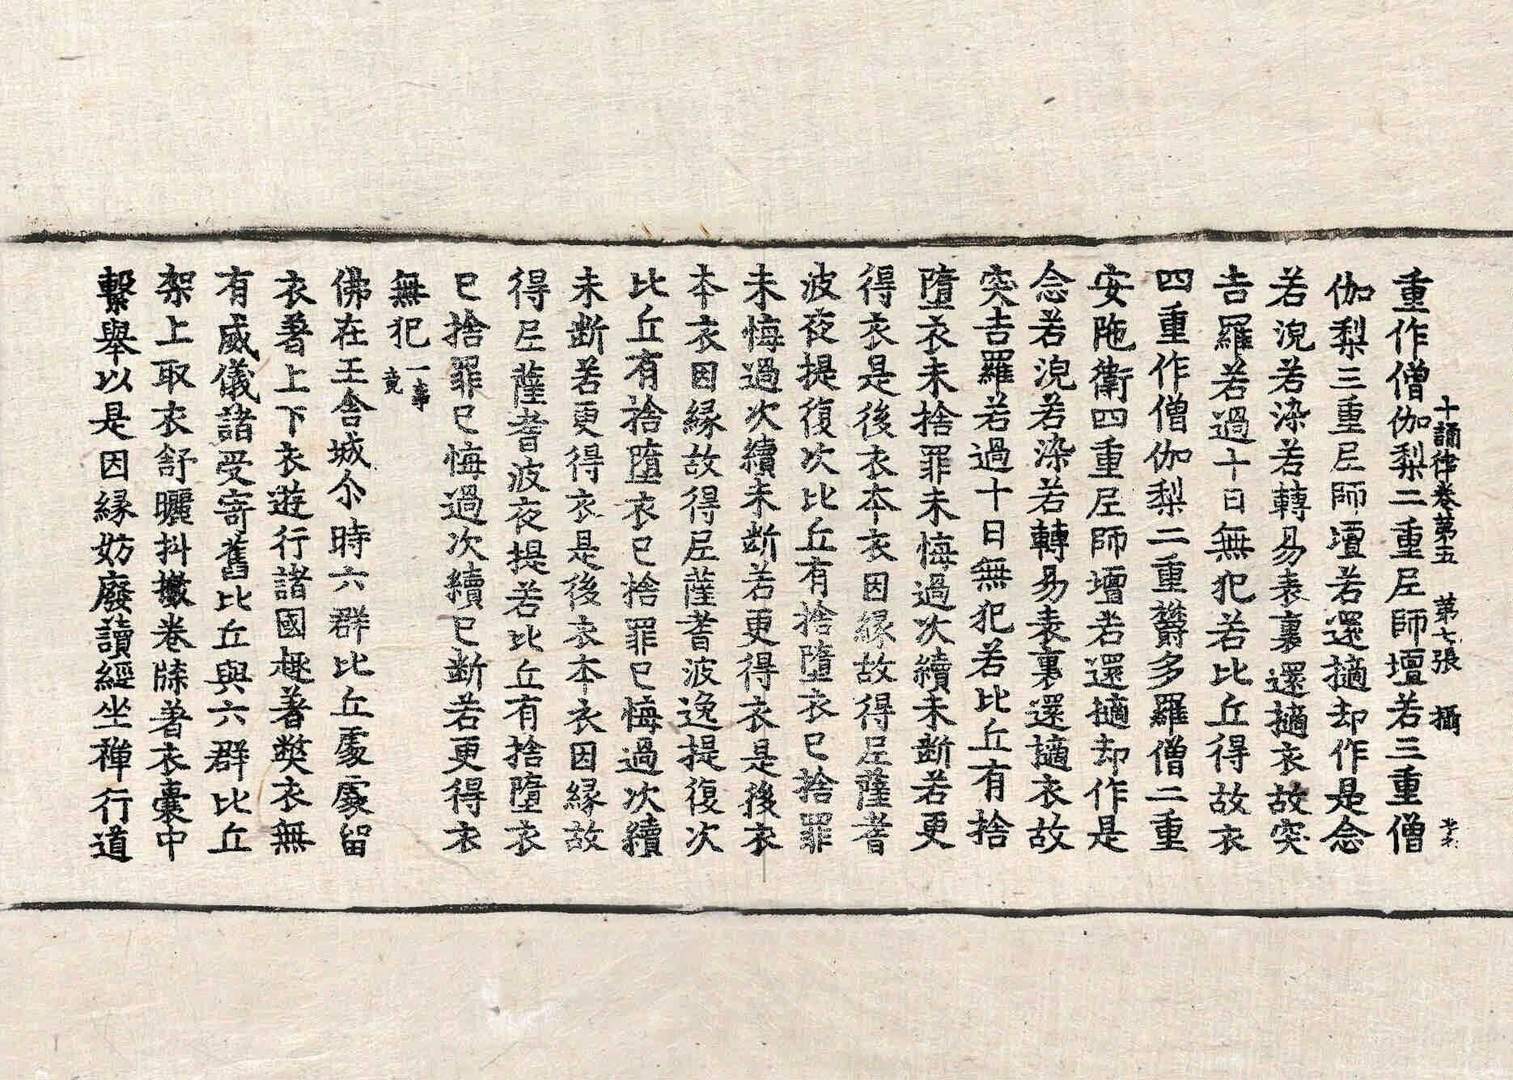 十誦律卷第五　第七張　攝
重作僧伽梨二重尼師壇若三重僧
伽梨三重尼師壇若還擿却作是念
若浣若染若轉易表裏還擿衣故突
吉羅若過十日無犯若比丘得故衣
四重作僧伽梨二重欝多羅僧二重
安陁衛四重尼師壇若還擿却作是
念若浣若染若轉易表裏還擿衣故
突吉羅若過十日無犯若比丘有捨
墮衣未捨罪未悔過次續未斷若更
得衣是後衣本衣因緣故得尼薩耆
波夜提復次比丘有捨墮衣已捨罪
未悔過次續未斷若更得衣是後衣
本衣因緣故得尼薩耆波逸提復次
比丘有捨墮衣已捨罪已悔過次續
未斷若更得衣是後衣本衣因緣故
得尼薩耆波夜提若比丘有捨墮衣
已捨罪已悔過次續已斷若更得衣
無犯一事竟
佛在王舍城尒時六群比丘處處留
衣著上下衣遊行諸國趣著弊衣無
有威儀諸受寄舊比丘與六群比丘
架上取衣舒曬抖擻卷牒著衣囊中
繫舉以是因緣妨廢讀經坐禪行道